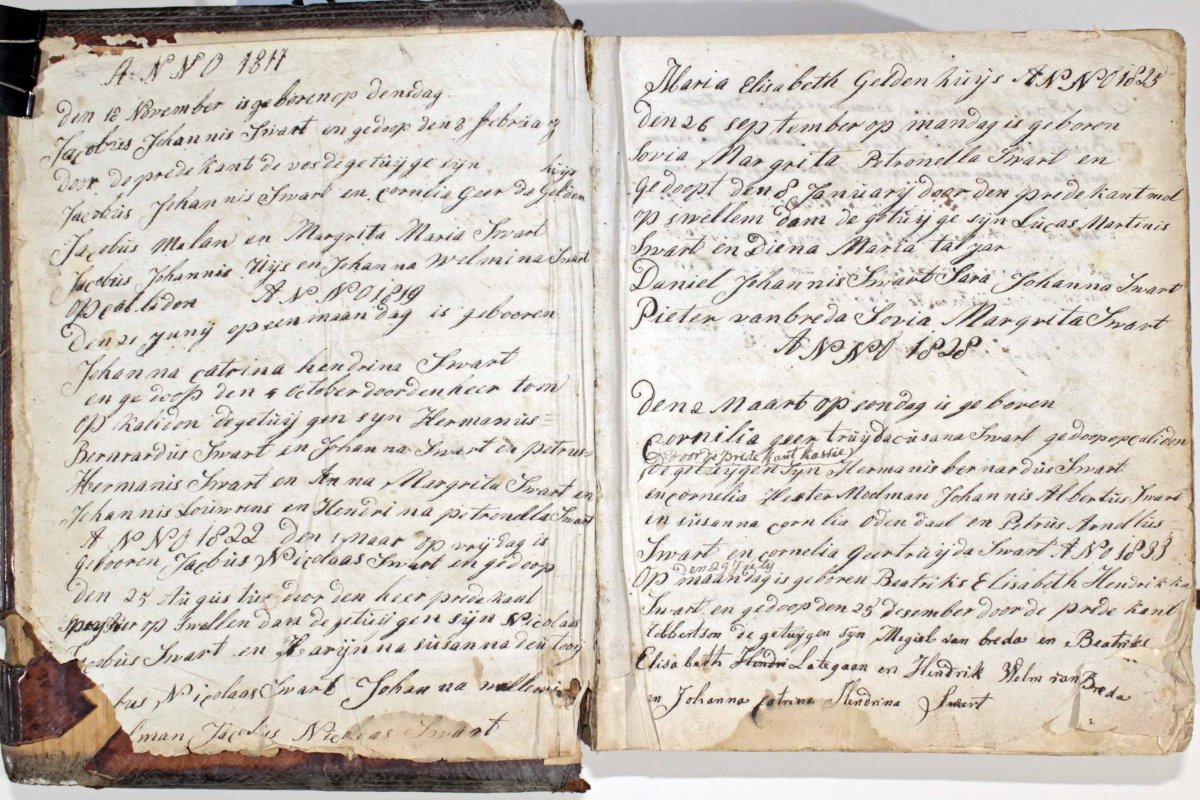 ANNO 1817
den 18 November is geboren op densdag
Jacobus Johannis Swart en gedoop den 8 februarij
door de predekant de vos de getuijge sijn
Jacobus Johannis Swart en Cornelia Geer de Gelden huijs
Jacobus Malan en Margrita Maria Swart
Jacobus Johannis Nijs en Johanna Welmina Swart
op caaledon ANNO 1819
den 21 Junij op een maandag is gebooren
Johanna Catrina hendrina Swart
en gedoop den 4 october door den heer tom
op kalidon de getuijgen syn Hermanus=
Bernardus Swart en Johanna Swart en petrus=
Hermanis Swart en Anna Margrita Swart en
Johannis Louwrens en Hendrina petronella Swart
ANNO 1822 den 1 maar op vrijdag is
gebooren Jacobus Nicolaas Swart en gedoop
den 25 Augustus door den heer prede kant
op Swellendam de getuijgen sijn Nicolaas
Jacobus Swart en Karijnna susanna den tooij
bus Nicolaas Swart Johanna
lman Jacobus Nicolaas Swart
Maria Elisabeth Geldenhuijs ANNO 1825
den 26 september op mandag is geboren
Sovia Margrita Petronella Swart en
gedoopt den 8 Januarij door den predekant mol
op swellemdam de getuijge sijn Lucas Martinis
Swart en Diena Maria taljar
Daniel Johannis Swart Sara Johanna Swart
Pieter van breda Sovia Margrita Swart
ANNO 1828
den 2 Maart op sondag is geboren
Cornilia geertruijda susana Swart gedoop op caliden
door de prede kant kassie
de getuijgen syn Hermanis bernardus Swart
en cornelia Hester Modman Johannis Albertus Swart
en susanna cornlia odendaal en Petrus Arnellius=
Swart en cornelia geertruijda Swart ANO 1833
den 29 July
op maandag is geboren Beatriks Elisabeth Hendrikka
Swart en gedoop den 25 desember door de prede kant
Robbertson de getuijgen syn Megiel van breda en Beatriks
Elisabeth Hendri Lategaan en Hendrik Welm van Breda
en Johanna Catrina Hendrina Swart